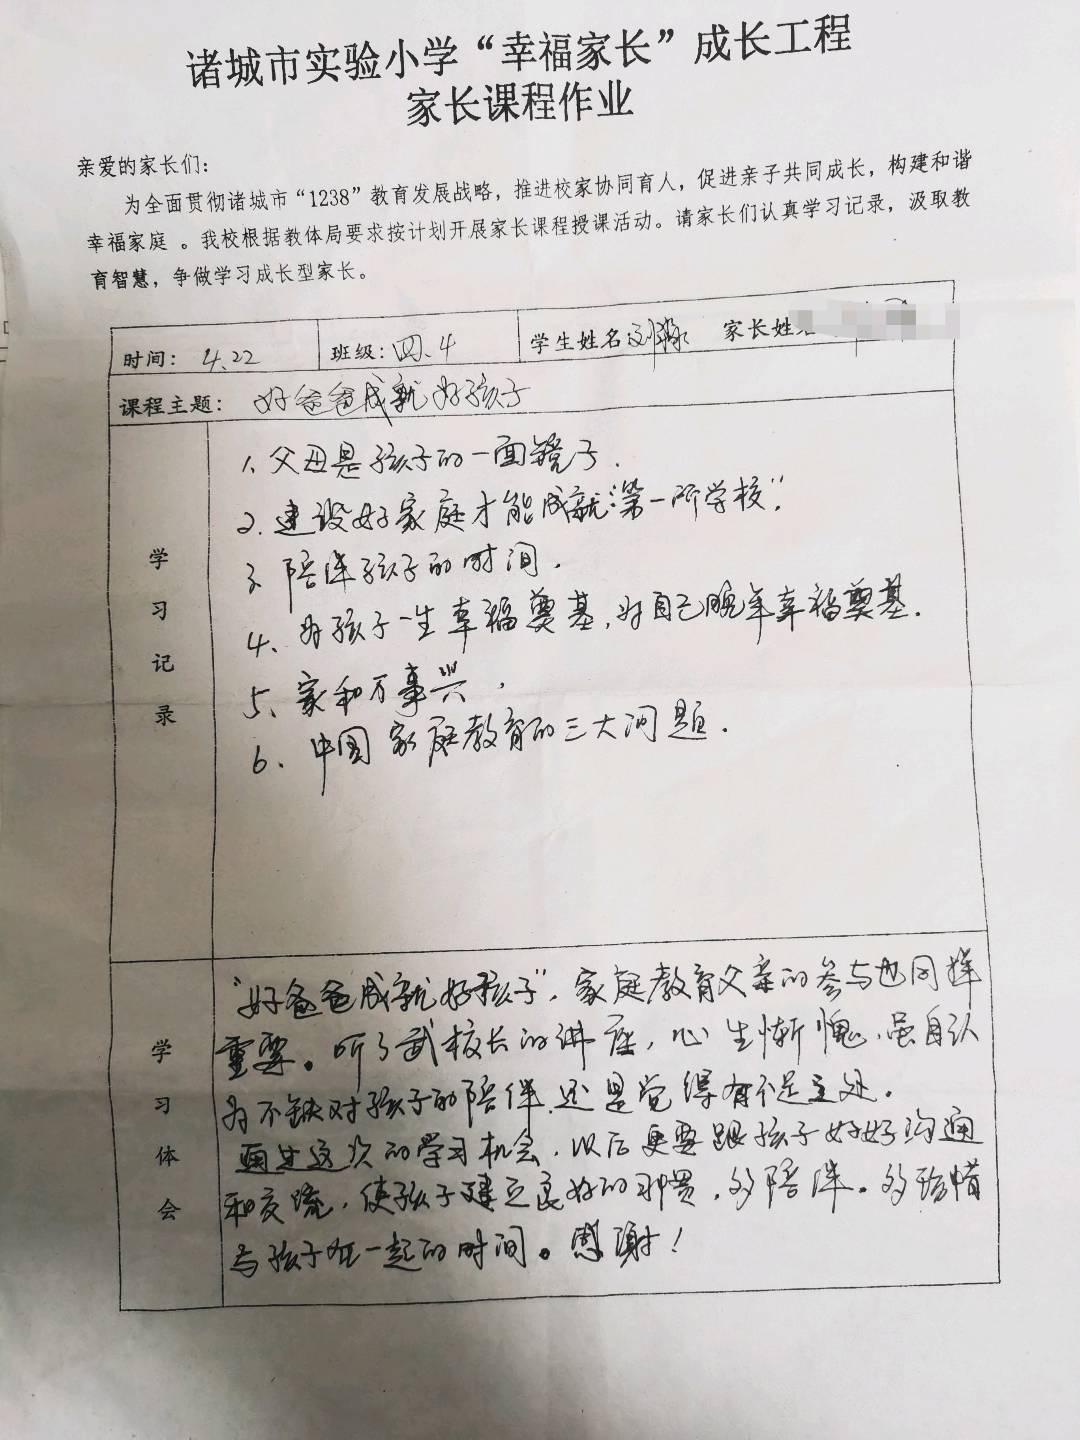 诸城市实验小学“幸福家长”成长工程
家长课程作业
亲爱的家长们：
为全面贯彻诸城市“1238”教育发展战略，推进校家协同育人，促进亲子共同成长，构建和谐
幸福家庭 。我校根据教体局要求按计划开展家长课程授课活动。请家长们认真学习记录，汲取教
育智慧，争做学习成长型家长。
时间：4.22 班级：四.4 学生姓名 刘 家长姓名
课程主题：好爸爸成就好孩子
学习记录
1、父母是孩子的一面镜子.
2.建设好家庭才能成就“第一所学校”.
3 陪伴孩子的时间.
4、为孩子一生幸福奠基,为自己晚年幸福奠基.
5、家和万事兴.
6、中国家庭教育的三大问题.
学习体会
“好爸爸成就好孩子”,家庭教育父亲的参与也同样
重要。听了武校长的讲座,心生惭愧.虽自认
为不缺对孩子的陪伴.还是觉得有不足之处.
通过这次的学习机会.以后更要跟孩子好好沟通
和交流,使孩子建立良好的习惯,多陪伴。多珍惜
与孩子在一起的时间。感谢!